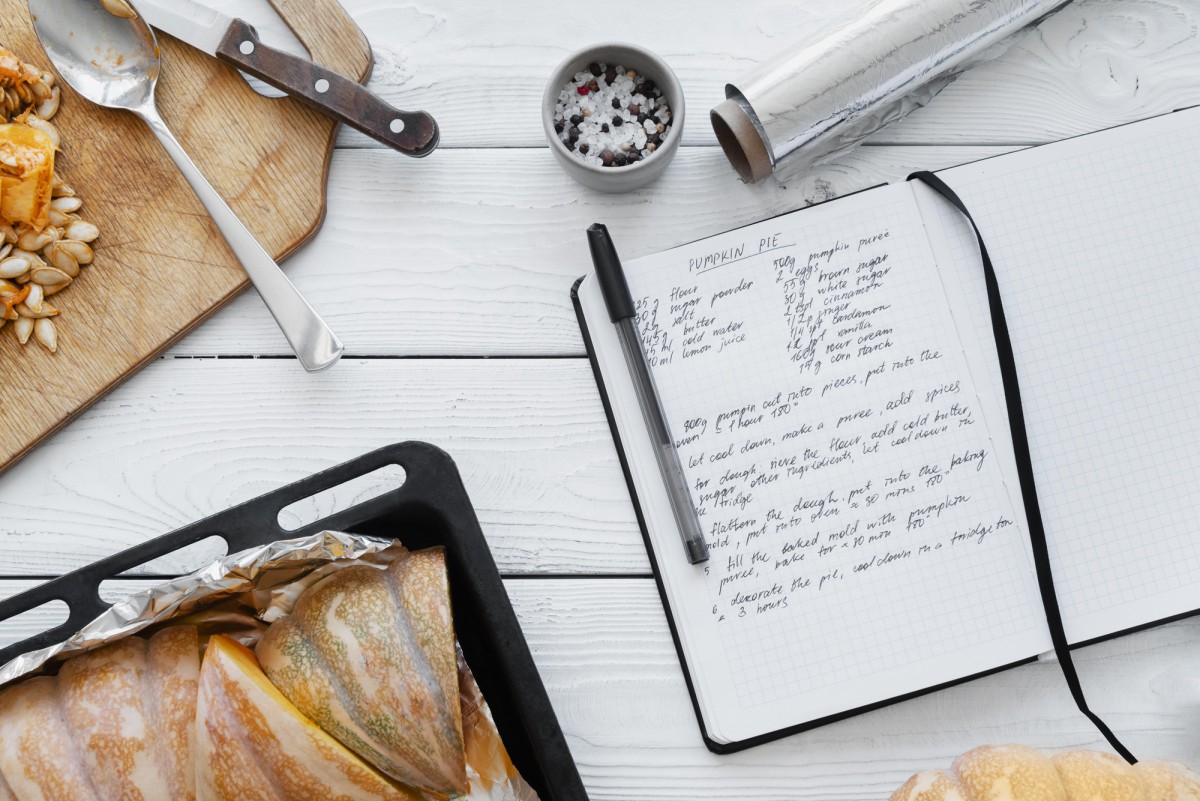 PUMPKIN PIE
25 g flour
30 g sugar powder
2g salt
145g butter
15 ml cold water
10 ml lemon juice
500g pumpkin puree
2 eggs
55 g brown sugar
30g white sugar
2 tspl cinnamon
1/2 ginger
1/4 spt cardamon
1/2 spt vanilla
160g sour cream
15g corn starch
800g pumpin cut into pieces, put into the
oven ≈ 1 hour 180°
let cool down, make a puree, add spices
for dough: sieve the flour, add cold butter,
sugar other ingredients, let cool down in
the fridge
flattern the dough, put into the baking
mold, put into oven ≈ 30 mins 180°
5 fill the baked mold with pumpkin
puree, bake for ≈ 30 min 180°
6 decorate the pie, cool down in a fridge for
≈ 3 hours